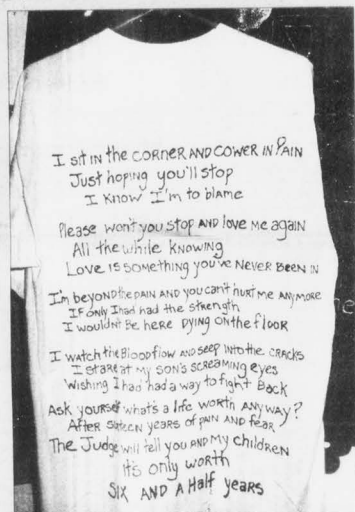 I sit in the corner and cower in Pain
Just hoping you'll stop
I know I'm to blame
Please won't you stop and love me again
All the while knowing
Love is something you've never been in
I'm beyond the pain and you can't hurt me anymore
If only I had had the strength
I wouldn't be here dying on the floor
I watch the Blood flow and seep into the cracks
I stare at my son's screaming eyes
Wishing I had had a way to fight back
Ask yourself what's a life worth anyway?
After sixteen years of pain and fear
The Judge will tell you and my children
it's only worth
Six and a Half years